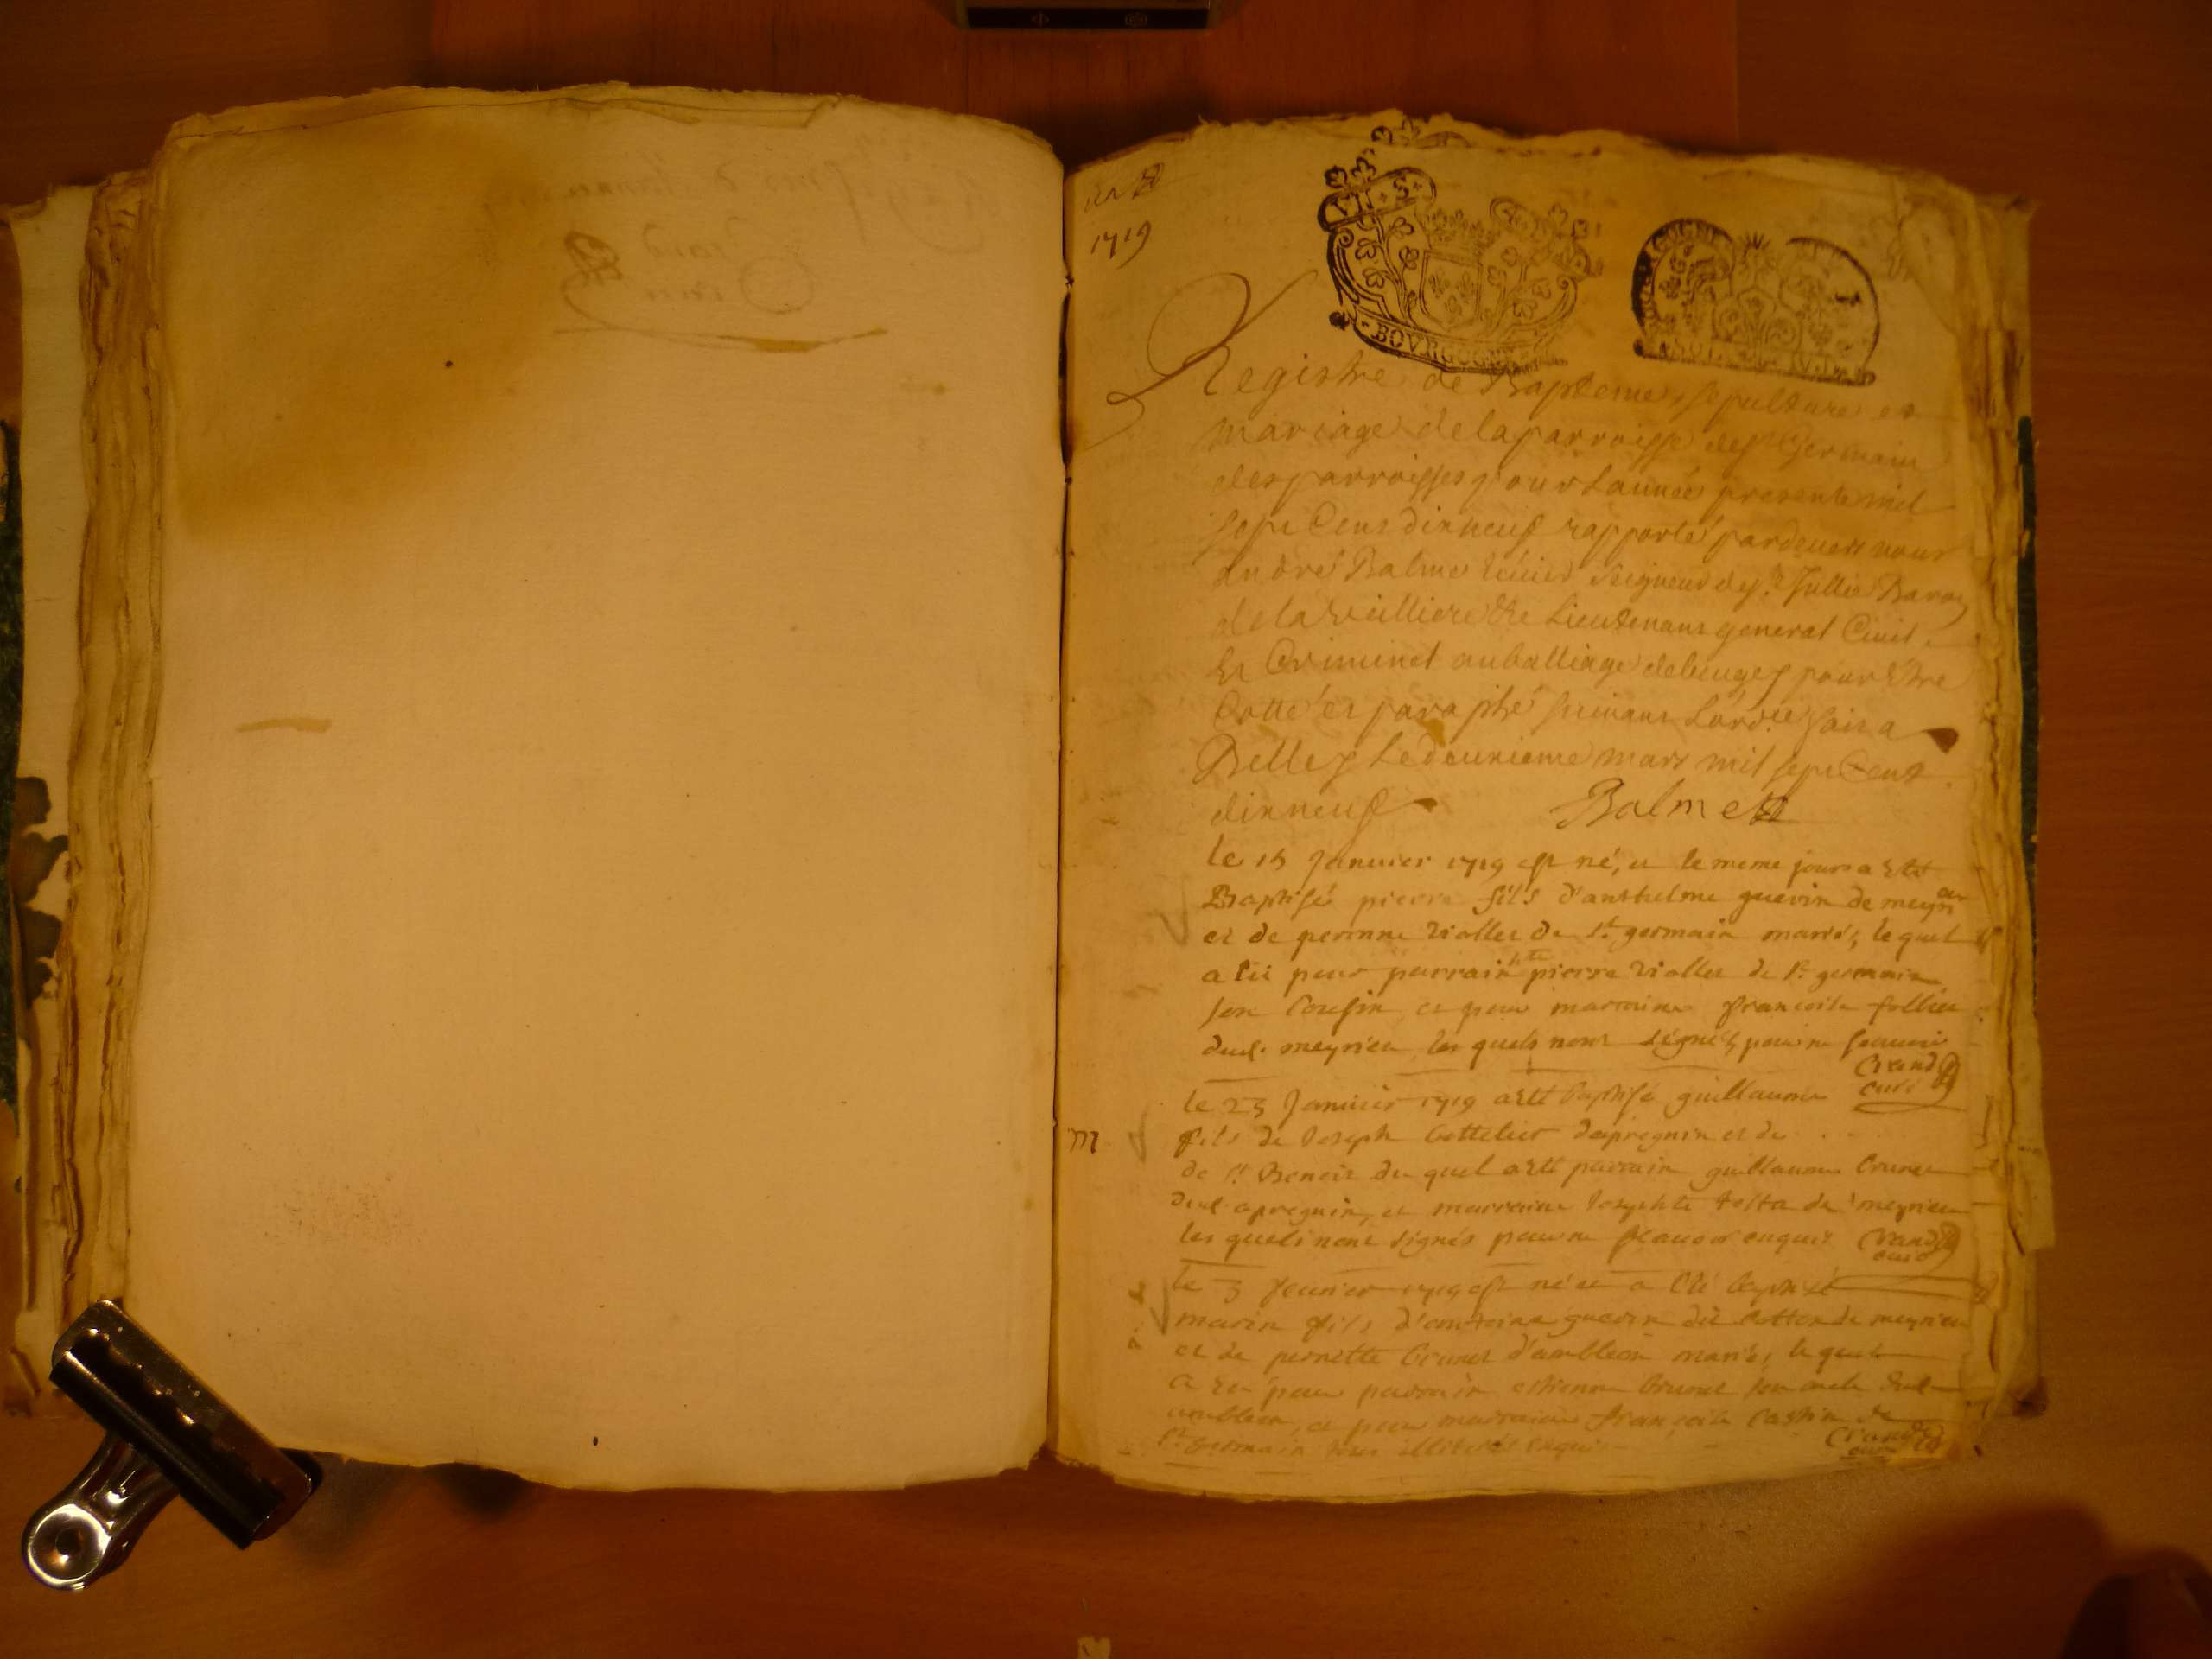 1719
BOVRGOGNE
Registre de Baptemes sepulture et
mariage de la parroisse de St Germain
des parroisses pour Lannée presente mil
sept Cens dix neuf rapporté pardevers nous
André Balme Seigneur de St Jullie Baron
de Lieutenant general Civil
Et Criminel au balliage de bugey pour Etre
Cotté et paraphé suivant Lord.ce fait a
Belley Le deuxieme mars mil sept Cent
dix neuf Balme
le 15 Janvier 1719 est né, et le meme jour a Eté
Baptisé pierre fils d'anthelme guerin de meyrieu
et de perinne Viollet de St germain mariés, le quel
a eü pour parrain pierre Viollet de St germain
son Cousin et pour marraine francoise
dud. meyrieu les quels nont signés pour ne scavoir
Crand
curé
le 23 Janvier 1719 a Eté baptisé guillaume
m fils de Joseph d'apregnin et de . . .
de St Benoit du quel a Eté parrain guillaume brunet
dud. apregnin, et marraine Josephte de meyrieu
les quels nont signés pour ne scavoir enquis Crand
curé
le 3 feuvrier 1719 est né et a été baptisé
marin fils d'antoine guerin dit de meyrieu
et de pernette brunet d'ambleon mariés, le quel
a eu pour parrain estienne brunet son oncle dud.
ambleon, et pour marraine françoise de
St germain tous illiterés enquis Crand
curé